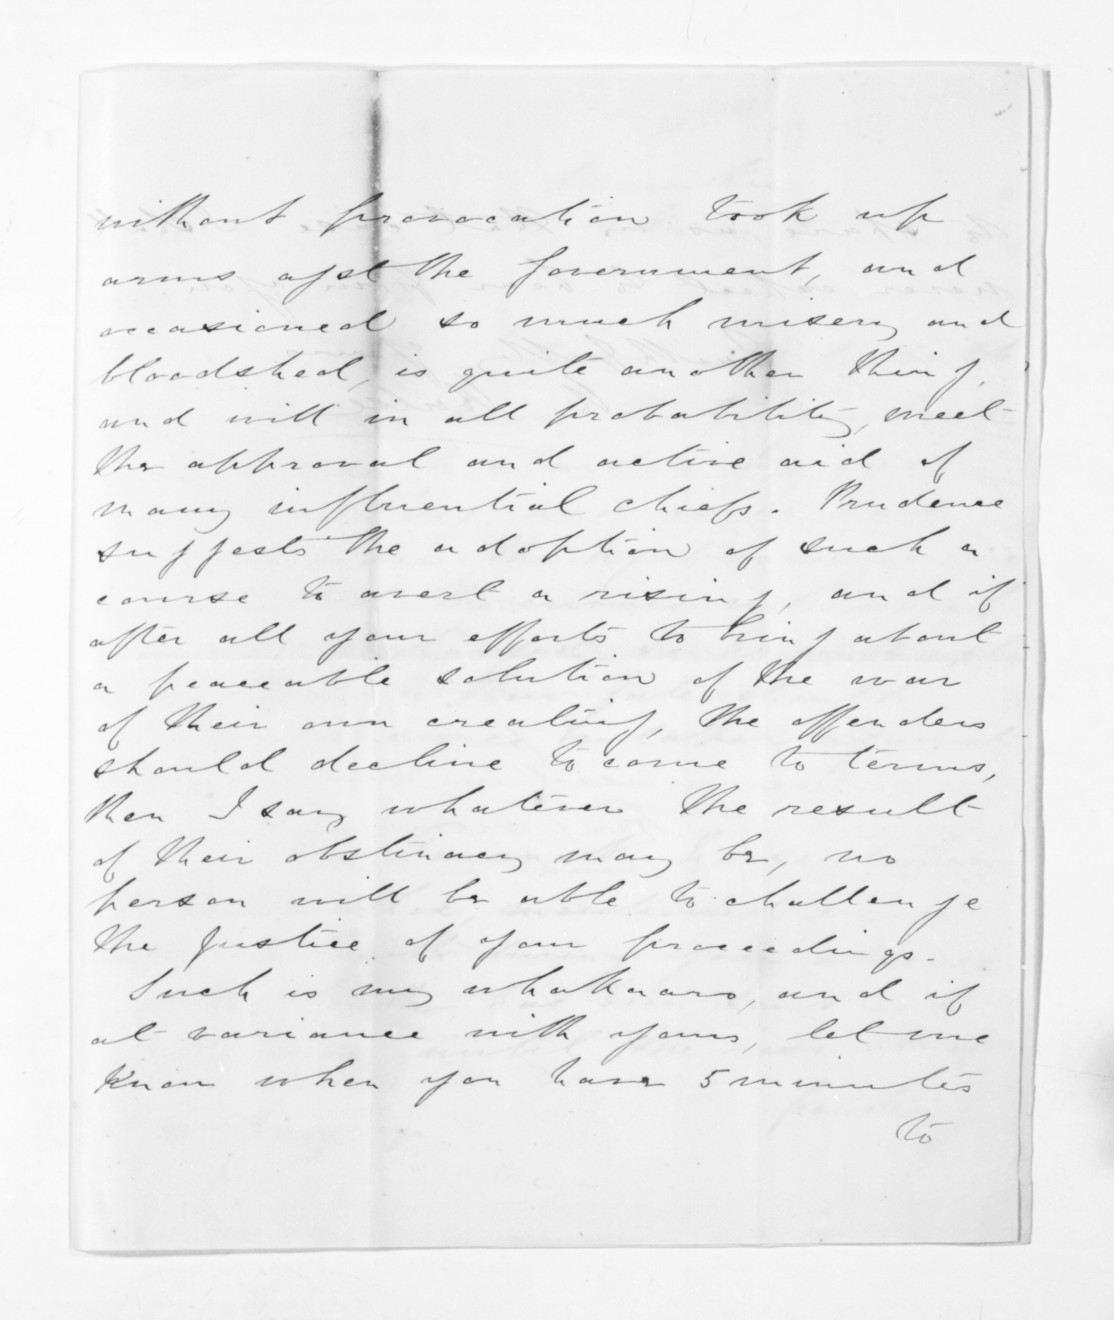 without provocation took up
arms agst the Government, and
occasioned so much misery and
bloodshed, is quite another thing,
and will in all probability, meet
the approval and active aid of
many influential chiefs. Prudence
suggests the adoption of such a
course to avert a rising, and if
after all your efforts to bring about
a peaceable solution of the war
of their own creating, the offenders
should decline to come to terms,
then I say whatever the result
of their obstinacy may be, no
person will be able to challenge
the justice of your proceedings.
Such is my whakaaro, and if
at variance with yours, let me
know when you have 5 minutes
to